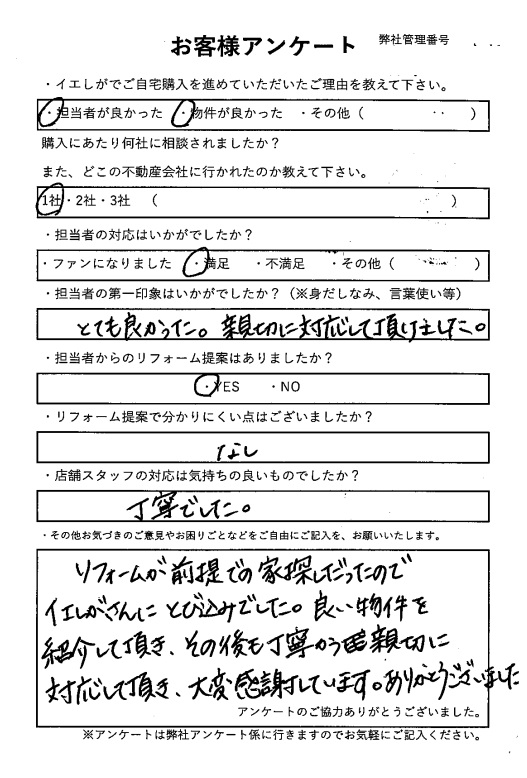 お客様アンケート 弊社管理番号
・イエしがでご自宅購入を進めていただいたご理由を教えて下さい。
・担当者が良かった ・物件が良かった ・その他（ ）
購入にあたり何社に相談されましたか？
また、どこの不動産会社に行かれたのか教えて下さい。
1社・2社・3社 （ ）
・担当者の対応はいかがでしたか？
・ファンになりました ・満足 ・不満足 ・その他（ ）
・担当者の第一印象はいかがでしたか？（※身だしなみ、言葉使い等）
とても良かった。親切に対応して頂けました。
・担当者からのリフォーム提案はありましたか？
・YES ・NO
・リフォーム提案で分かりにくい点はございましたか？
なし
・店舗スタッフの対応は気持ちの良いものでしたか？
丁寧でした。
・その他お気づきのご意見やお困りごとなどをご自由にご記入を、お願いいたします。
リフォームが前提での家探しだったので
イエしがさんにとび込みでした。良い物件を
紹介して頂き、その後も丁寧かつ親切に
対応して頂き、大変感謝しています。ありがとうございました
アンケートのご協力ありがとうございました。
※アンケートは弊社アンケート係に行きますのでお気軽にご記入ください。